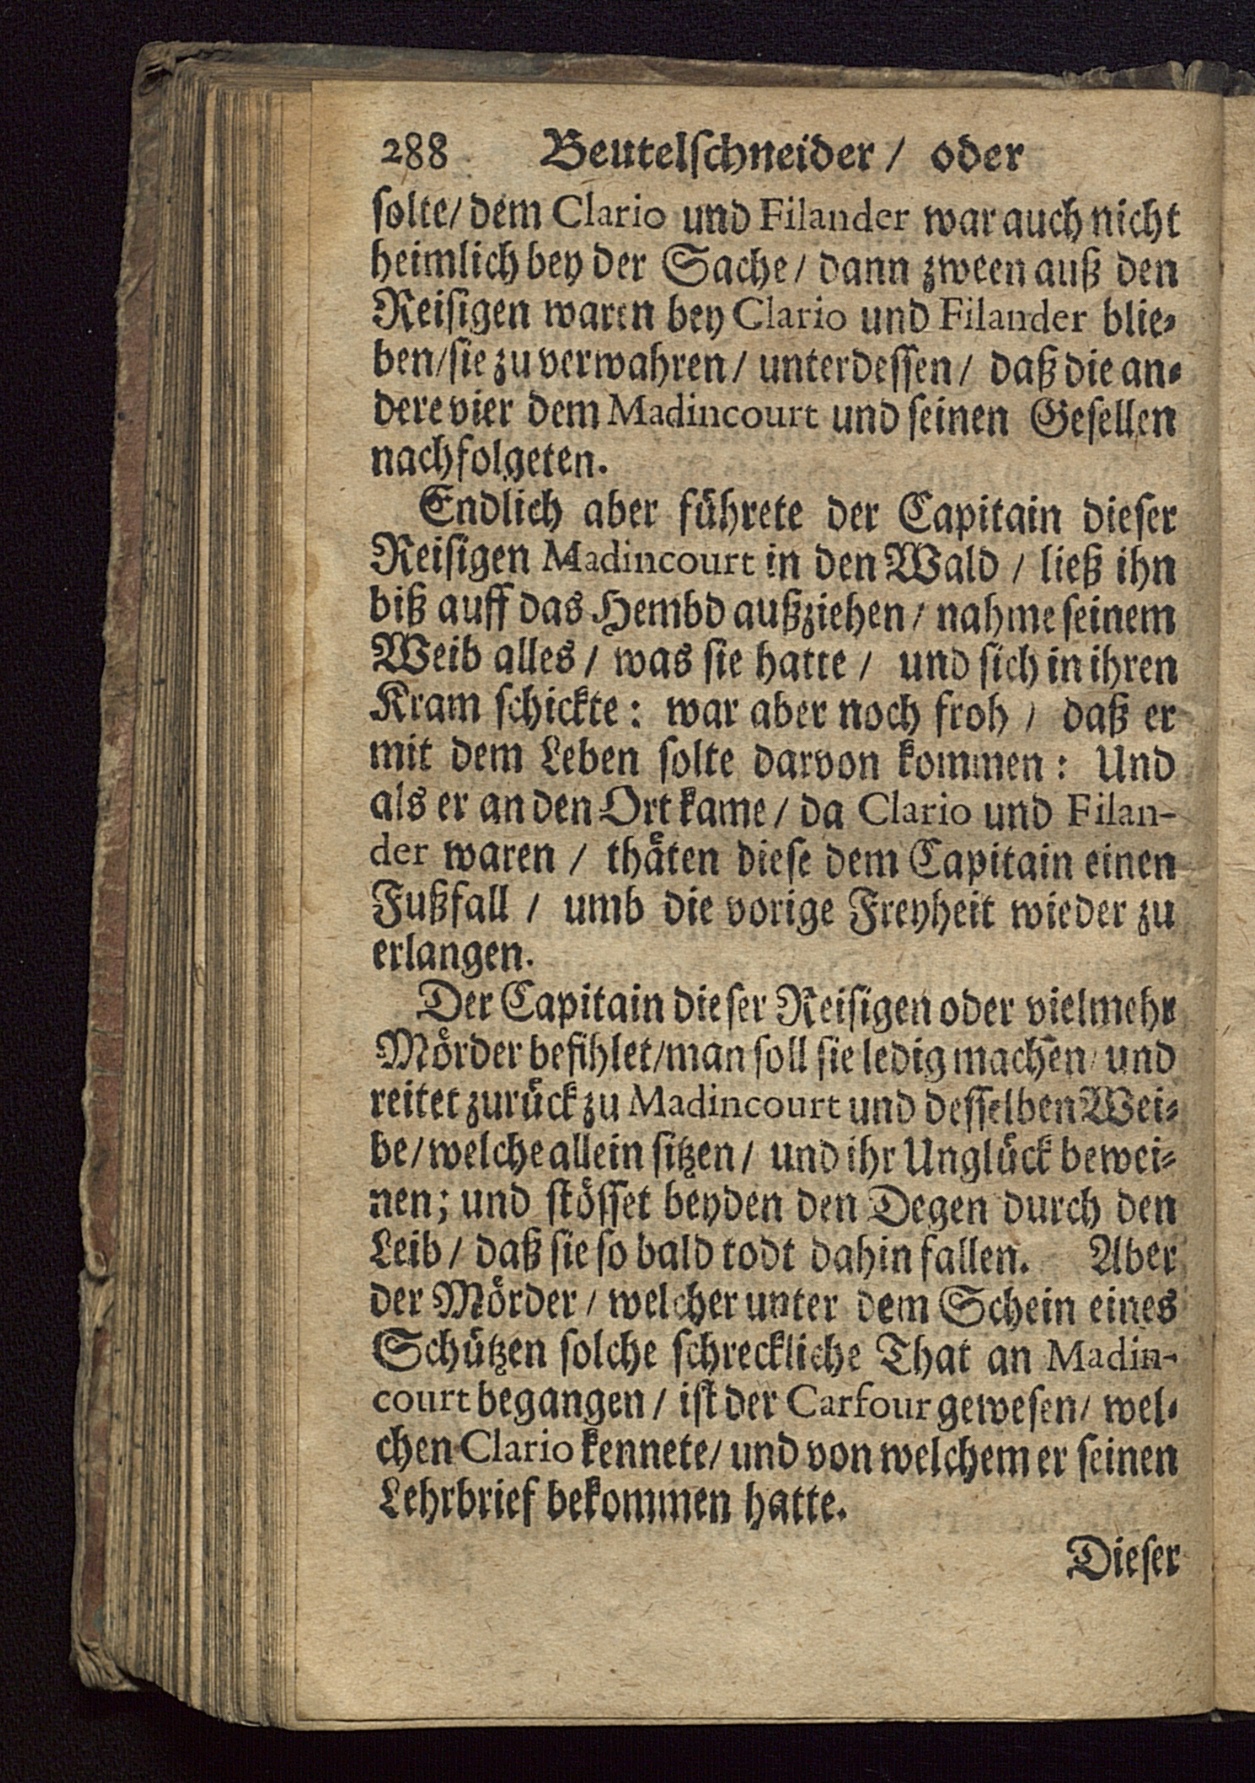 288 Beutelschneider / oder
solte / dem Clario und Filander war auch nicht
heimlich bey der Sache / dann zween auß den
Reisigen waren bey Clario und Filander blie-
ben / sie zu verwahren / unterdessen / daß die an-
dere vier dem Madincourt und seinen Gesellen
nachfolgeten.
Endlich aber führete der Capitain dieser
Reisigen Madincourt in den Wald / ließ ihn
biß auff das Hembd außziehen / nahme seinem
Weib alles / was sie hatte / und sich in ihren
Kram schickte: war aber noch froh / daß er
mit dem Leben solte darvon kommen: Und
als er an den Ort kame / da Clario und Filan-
der waren / thäten diese dem Capitain einen
Fußfall / umb die vorige Freyheit wieder zu
erlangen.
Der Capitain dieser Reisigen oder vielmehr
Mörder befihlet / man soll sie ledig machen / und
reitet zurück zu Madincourt und desselben Wei-
be / welche allein sitzen / und ihr Unglück bewei-
nen; und stösset beyden den Degen durch den
Leib / daß sie so bald todt dahin fallen. Aber
der Mörder / welcher unter dem Schein eines
Schützen solche schreckliche That an Madin-
court begangen / ist der Carfour gewesen / wel-
chen Clario kennete / und von welchem er seinen
Lehrbrief bekommen hatte.
Dieser